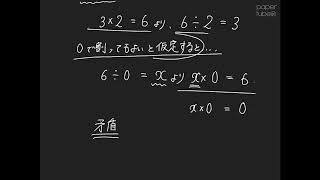 paper
tube
3×2=6より、6÷2=3
0で割ってもよいと仮定すると...
6÷0=xよりx×0=6
x×0=0
矛盾